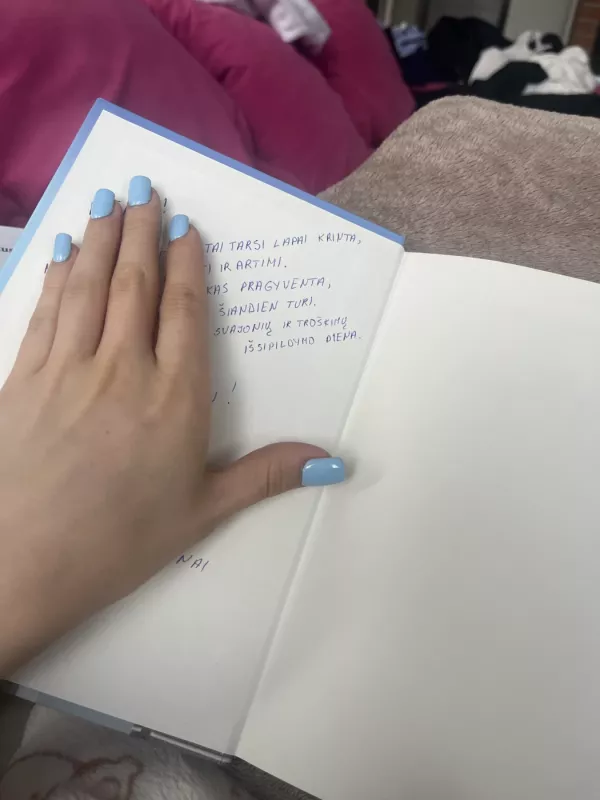 TAI TARSI LAPAI KRINTA,
IR ARTIMI.
KAS PRAGYVENTA,
ŠIANDIEN TURI.
SVAJONIŲ IR TROŠKIMŲ
IŠSIPILDYMO DIENA.
!
NAI